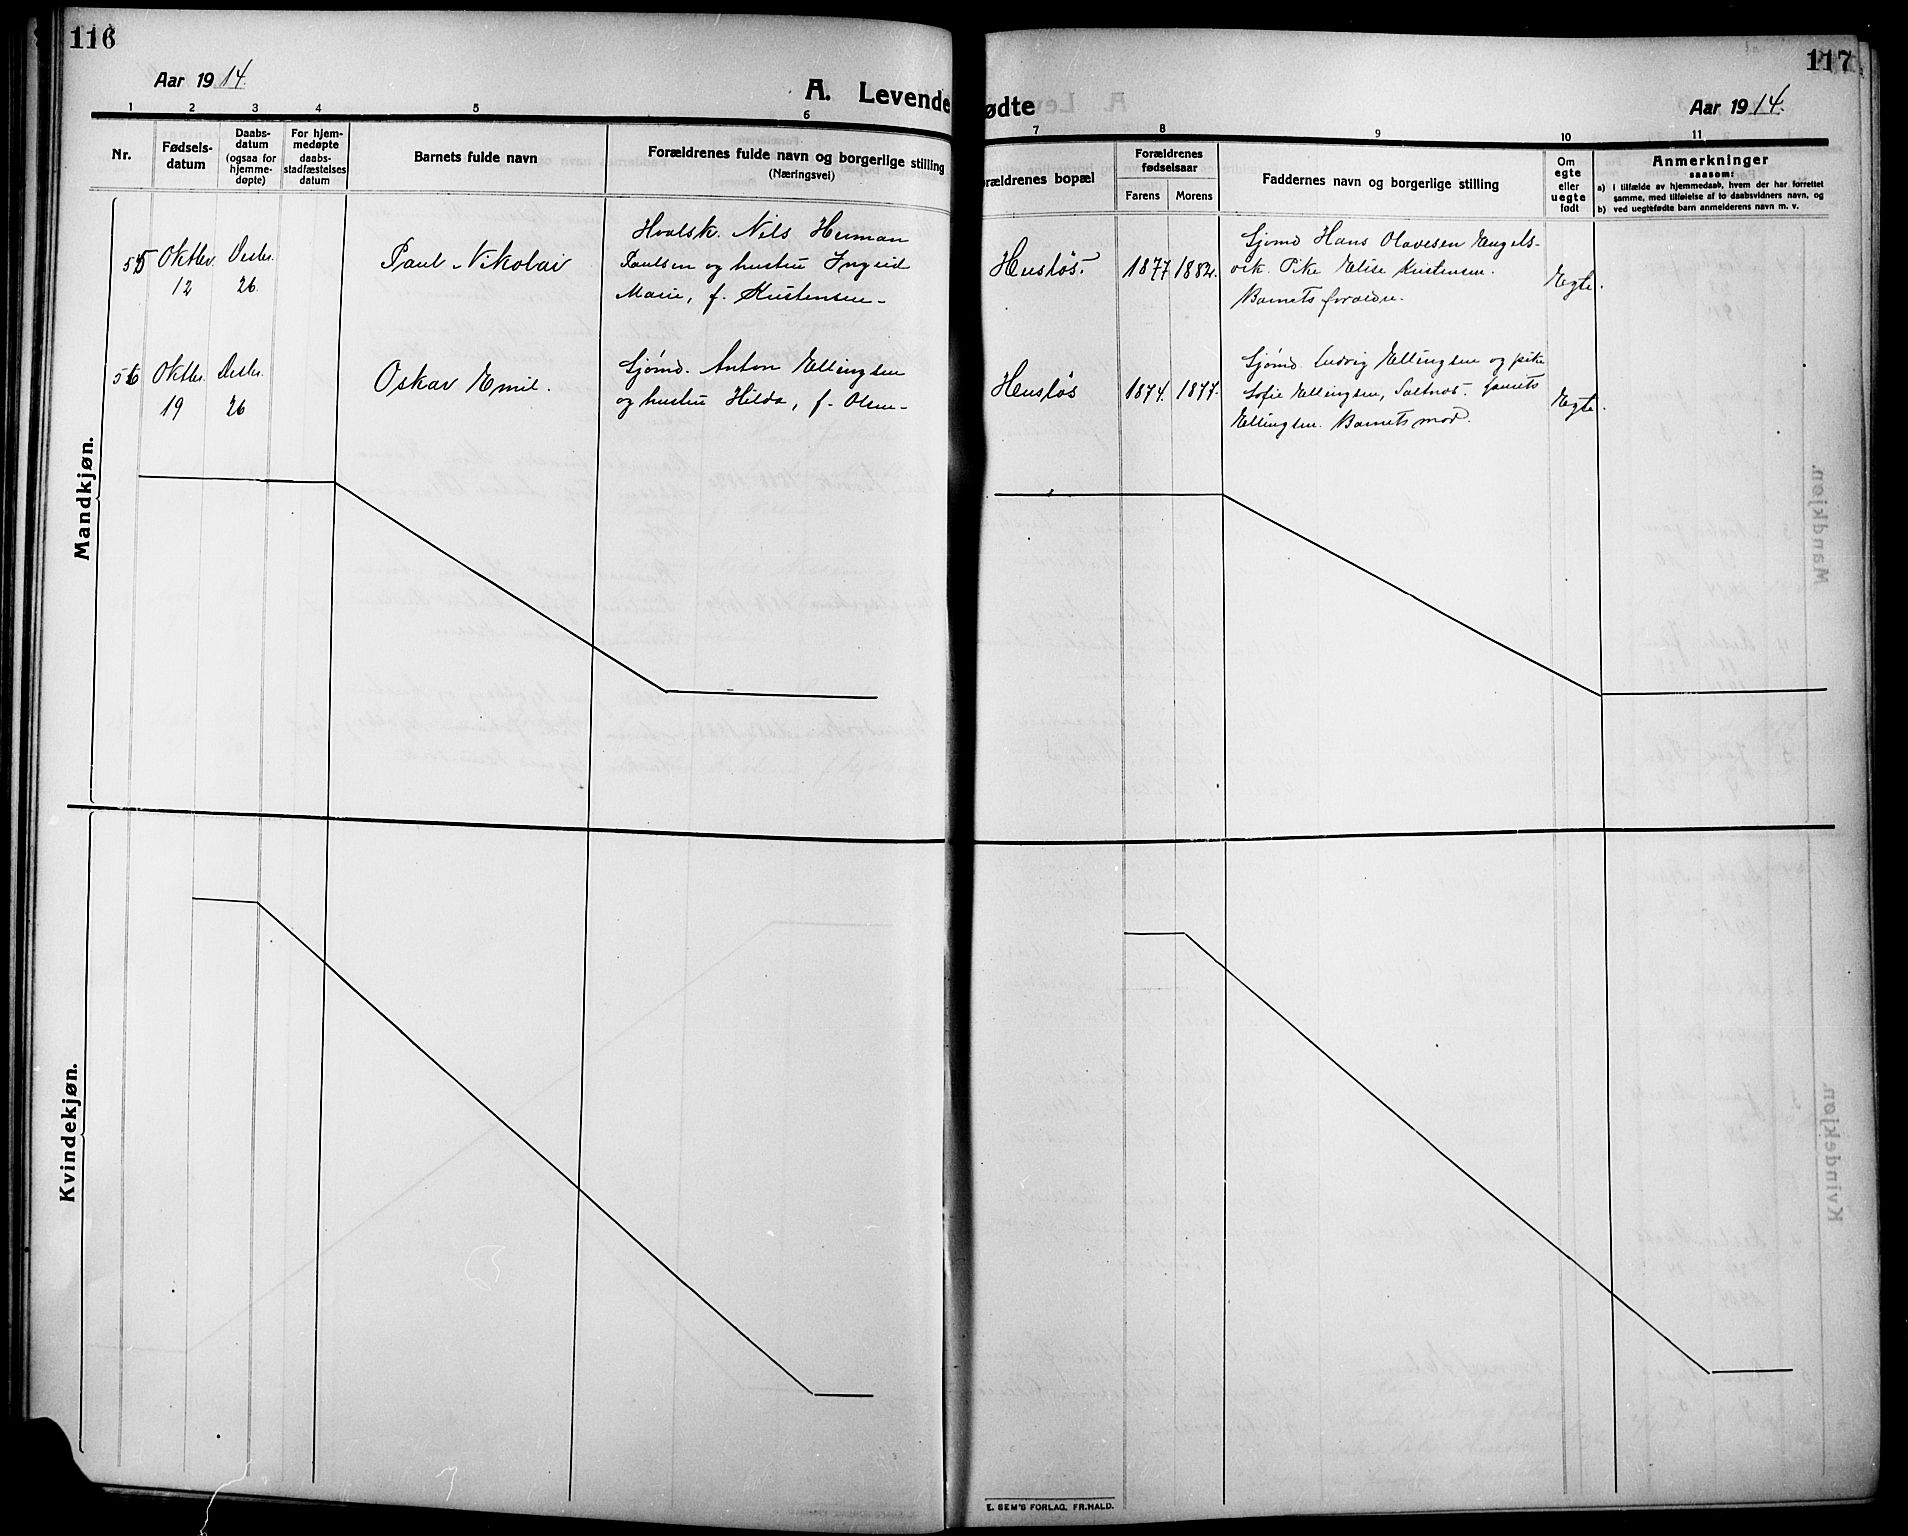 116
117
Aar 1914.
A. Levende
ødte
Aar 1914.
1 2 3 4 5 6
7 8 9 10 11
Nr.
Fødsels-
datum
Daabs-
datum
(ogsaa for
hjemme-
døpte)
For hjem-
medøpte
daabs-
stadfæstelses
datum
Barnets fulde navn
Forældrenes fulde navn og borgerlige stilling
(Næringsvei)
orældrenes bopæl
Forældrenes
fødselsaar
Farens Morens
Faddernes navn og borgerlige stilling
Om
egte
eller
uegte
født
Anmerkninger
saasom:
a) i tilfælde av hjemmedaab, hvem der har forrettet
samme, med tilføielse af to daabsvidners navn, og
b) ved uegtefødte barn anmelderens navn m. v.
Mandkjøn.
55
Oktbr.
12
Desbr.
26.
Paul Nikolai
Hvalsk. Nils Herman
Paulsen og hustru Ingrid
Marie, f. Kristensen-
Husløs.
1877. 1882.
Sjømd Hans Olavesen Engels-
vik. Pike Elise Kristensen.
Barnets forældre.
Egte.
56
Oktbr.
19
Desbr.
26
Oskar Emil.
Sjømd. Anton Ellingsen
og hustru Hilda, f. Olsen-
Husløs
1874. 1877.
Sjømd. Ludvig Ellingsen og pike
Sofie Ellingsen, Saltnes.
Ellingsen. Barnets mor.
Egte.
Kvindekjøn.
E. SEM'S FORLAG, FR.HALD.